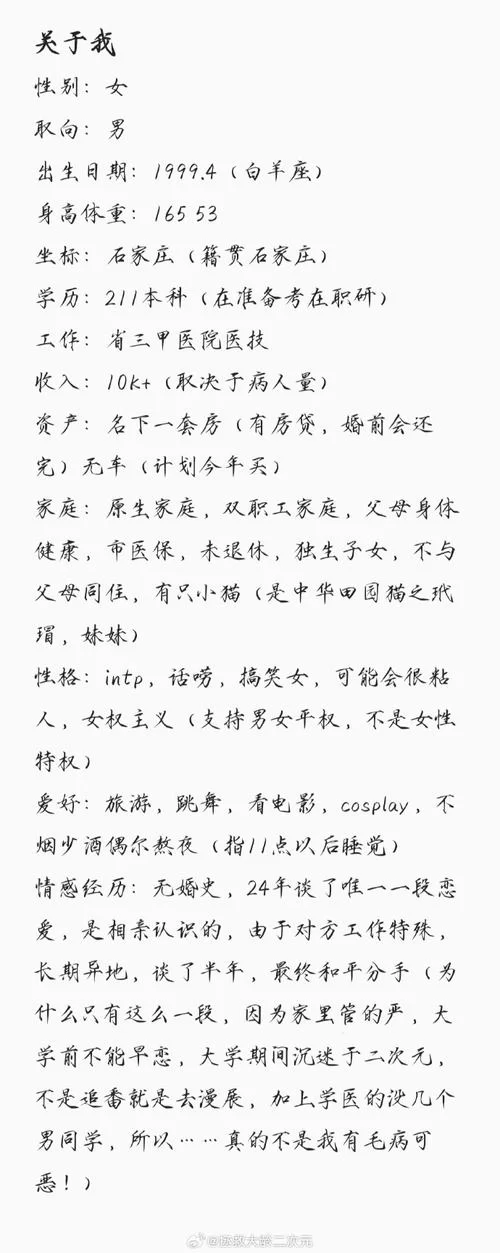 关于我
性别：女
取向：男
出生日期：1999.4（白羊座）
身高体重：165 53
坐标：石家庄（籍贯石家庄）
学历：211本科（在准备考在职研）
工作：省三甲医院医技
收入：10k+（取决于病人量）
资产：名下一套房（有房贷，婚前会还
完）无车（计划今年买）
家庭：原生家庭，双职工家庭，父母身体
健康，市医保，未退休，独生子女，不与
父母同住，有只小猫（是中华田园猫之玳
瑁，妹妹）
性格：intp，话唠，搞笑女，可能会很粘
人，女权主义（支持男女平权，不是女性
特权）
爱好：旅游，跳舞，看电影，cosplay，不
烟少酒偶尔熬夜（指11点以后睡觉）
情感经历：无婚史，24年谈了唯一一段恋
爱，是相亲认识的，由于对方工作特殊，
长期异地，谈了半年，最终和平分手（为
什么只有这么一段，因为家里管的严，大
学前不能早恋，大学期间沉迷于二次元，
不是追番就是去漫展，加上学医的没几个
男同学，所以……真的不是我有毛病可
恶！）
@拯救大龄二次元